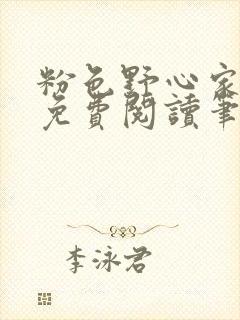 粉色野心家
免費閱讀筆
李泳君